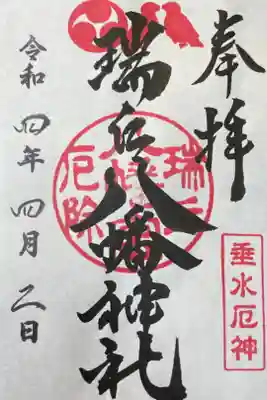 奉拝
瑞丘八幡神社
令和四年四月二日
垂水厄神
瑞丘
八幡
厄除